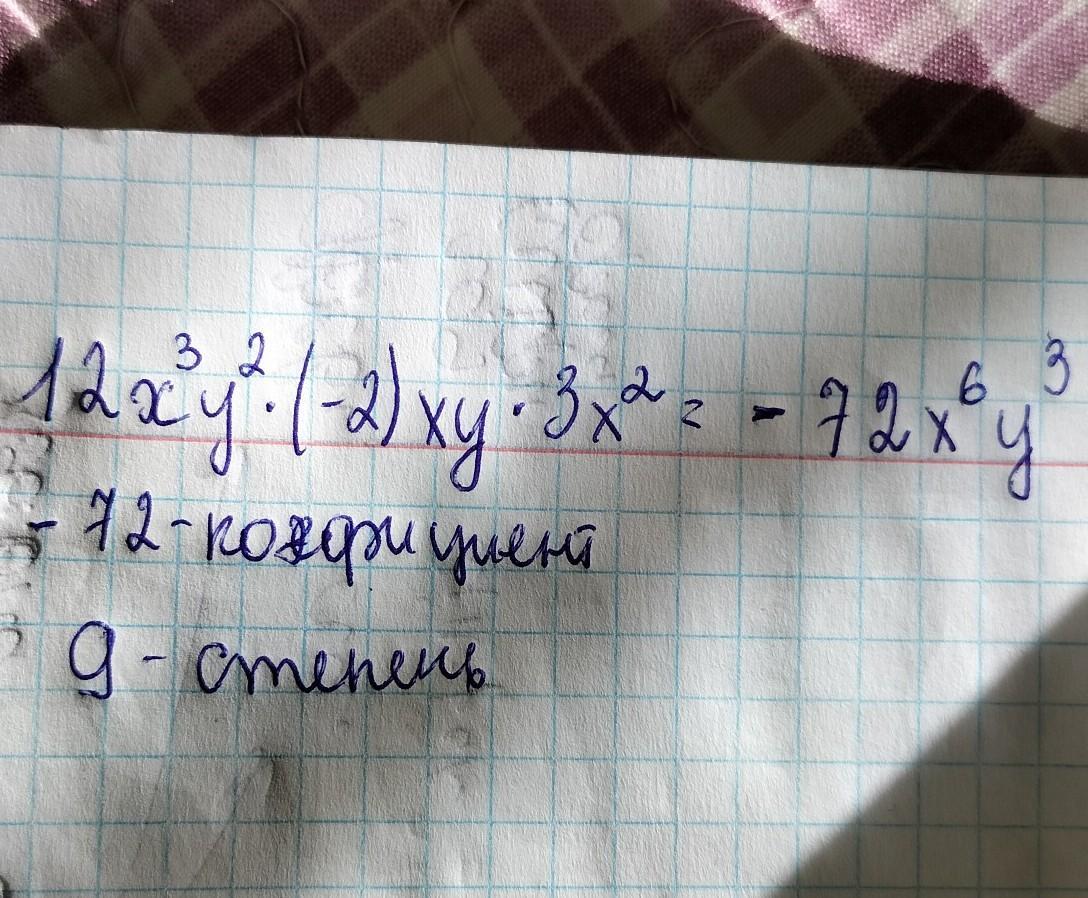 12x³y²·(-2)xy·3x² = - 72x⁶y³
- 72 - коэфициент
9 - степень